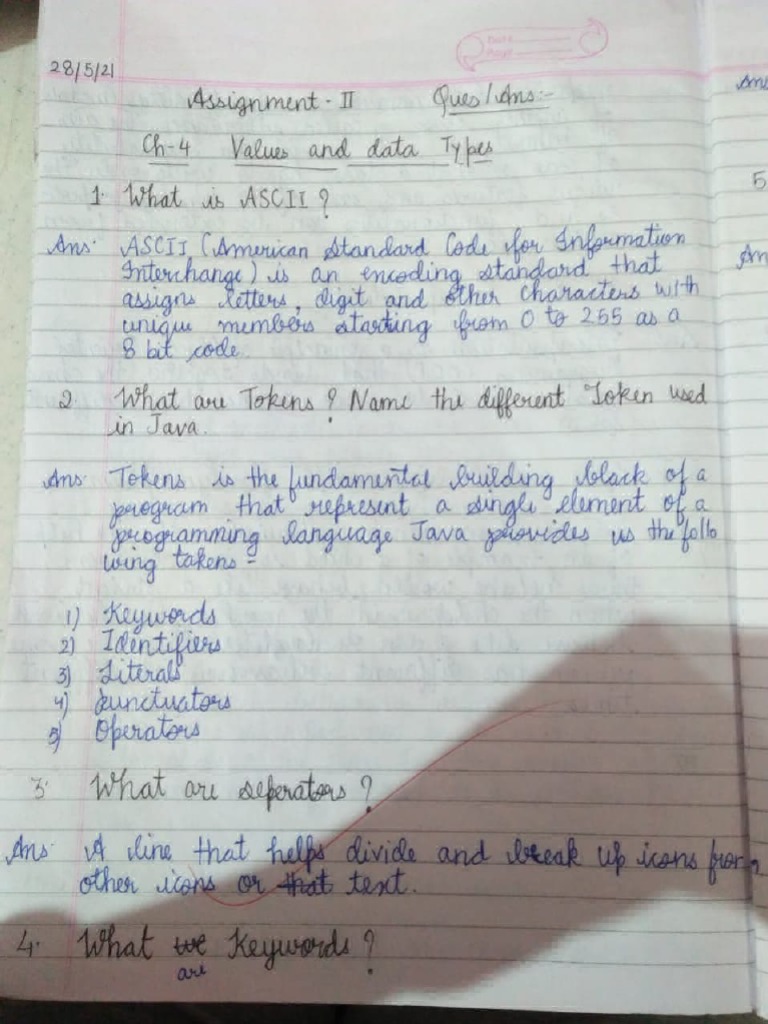 28/5/21
Assignment - II Ques/Ans:-
Ch-4 Values and data Types
1. What is ASCII ?
Ans. ASCII (American Standard Code for Information
Interchange) is an encoding standard that
assigns letters, digit and other characters with
unique members starting from 0 to 255 as a
8 bit code.
2. What are Tokens ? Name the different Token used
in Java.
Ans. Tokens is the fundamental building block of a
program that represent a single element of a
programming language Java provides us the follo
wing takens -
1) Keywords
2) Identifiers
3) Literals
4) punctuators
5) Operators
3. What are seperators ?
Ans. A line that helps divide and break up icons from
other icons or that text.
4. What are Keywords ?
Ans
5
An